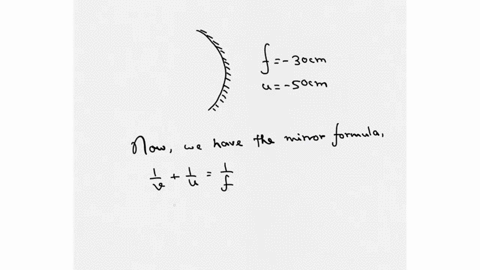 f = -30cm
u = -50cm
Now, we have the mirror formula,
1/v + 1/u = 1/f